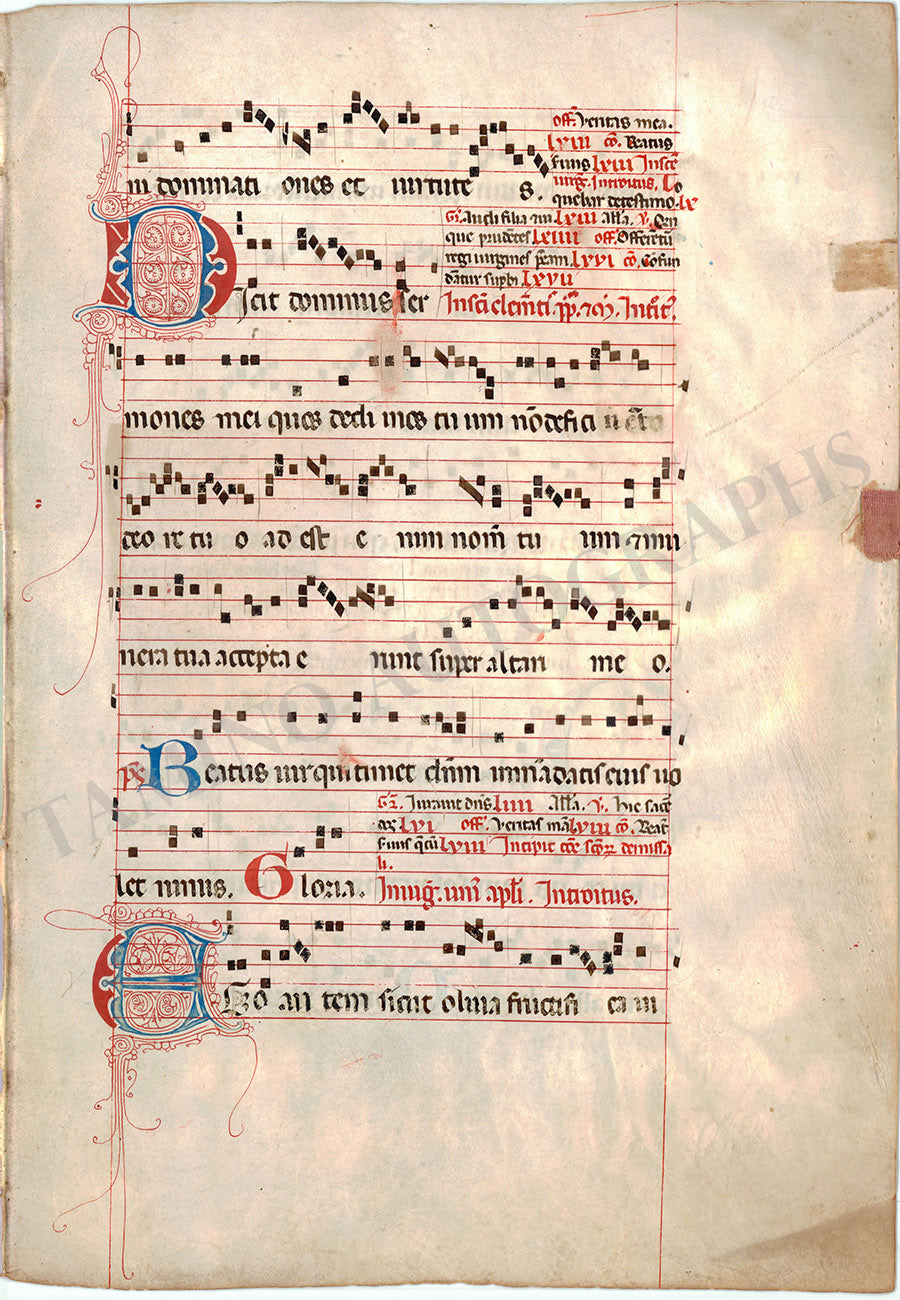 off. Veritas mea.
LXIII co. Beatus
suus LXIII In sce
uirg. Introitus. Lo
quebar de testimo. LX
in dominati ones et uirtute s.
Gr. Audi filia LXIII Alla. V. Quin
que prudetes LXIIII off. Offeretur
regi uirgines LXXI co. Cofun
datur supbi LXXII
Dicit dominus ser In sci clemetis pp. et m. Introit.
mones mei quos dedi in os tu um no defici
deo re tu o ad est e nim nom tu um et mu
nera tua accepta e runt super altari me o.
ps Beatus uir qui timet dnm in madatis eius uo
Gr. Iurauit dns LIIII Alla. V. hic sacer
LVI off. Veritas mea LVIII co. Beat
suus LXIII Incipit
li.
let nimis. Gloria. In uig. uni apli. Introitus.
Ego au tem sicut oliua fructifi ca ui
TAMINO AUTOGRAPHS